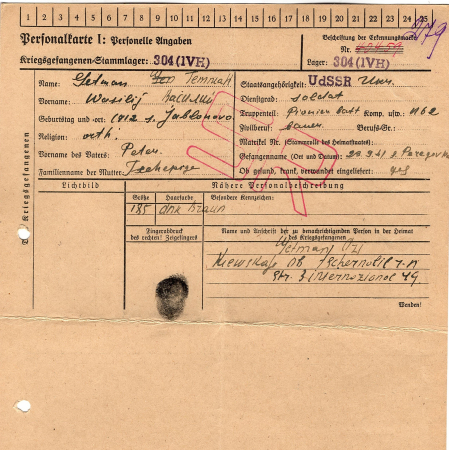 1 2 3 4 5 6 7 8 9 10 11 12 13 14 15 16 17 18 19 20 21 22 23 24 25
279
Personalkarte I: Personelle Angaben
Kriegsgefangenen-Stammlager: 304 (IVH)
Beschriftung der Erkennungsmarke
Nr.
Lager: 304 (IVH)
Des Kriegsgefangenen
Name: Getman
Vorname: Wasilij
Geburtstag und -ort: 1912 s. Jablonowo
Religion: orth.
Vorname des Vaters: Peter
Familienname der Mutter:
Staatsangehörigkeit: UdSSR Ukr.
Dienstgrad: Soldat
Truppenteil: Pionier Batt Komp. usw.: 1162
Zivilberuf: Bauer Berufs-Gr.:
Matrikel Nr. (Stammrolle des Heimatstaates):
Gefangennahme (Ort und Datum):
Ob gesund, krank, verwundet eingeliefert: ges
Lichtbild
Nähere Personalbeschreibung
Größe
Haarfarbe
Besondere Kennzeichen:
185
dkl braun
Fingerabdruck
des rechten! Zeigefingers
Name und Anschrift der zu benachrichtigenden Person in der Heimat
des Kriegsgefangenen
Getman
Str. 3 Internazional 49
Wenden!